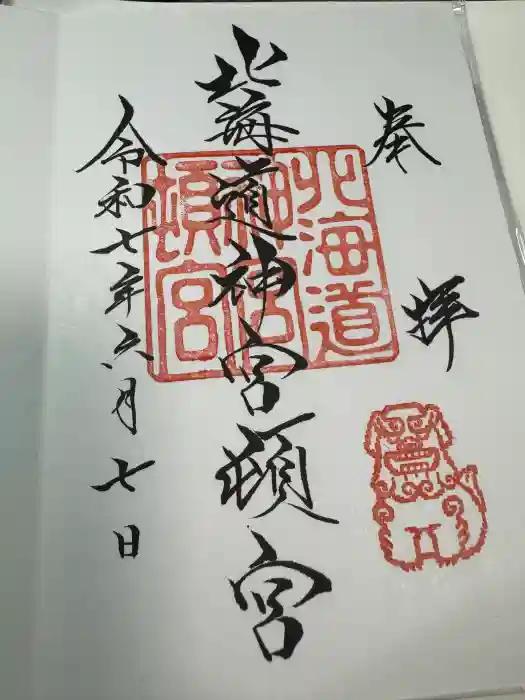 奉拝
北海道神宮頓宮
北海道
神宮
頓宮
令和七年六月七日